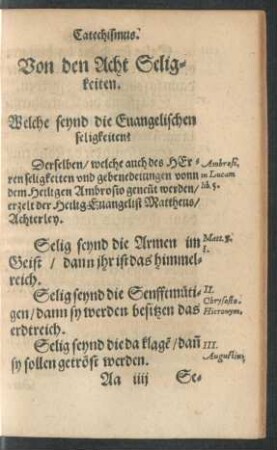 Catechismus.
Von den Acht Selig-
keiten.
Welche seynd die Euangelischen
seligkeiten?
Derselben/ welche auch des HEr-
ren seligkeiten vnd gebenedeiungen vonn
dem Heiligen Ambrosio genent werden/
erzelt der Heilig Euangelist Mattheus/
Achterley.
Ambrosi.
in Lucam
lib. 5.
Selig seynd die Armen im
Geist / dann jhr ist das himmel-
reich.
Matt. 5.
I.
Selig seynd die Senfftmüti-
gen/ dann sy werden besitzen das
erdtreich.
II.
Chrysosto.
Hieronym.
Selig seynd die da klagē/ dañ
sy sollen getröst werden.
III.
Augustin;
Aa iiij Se-